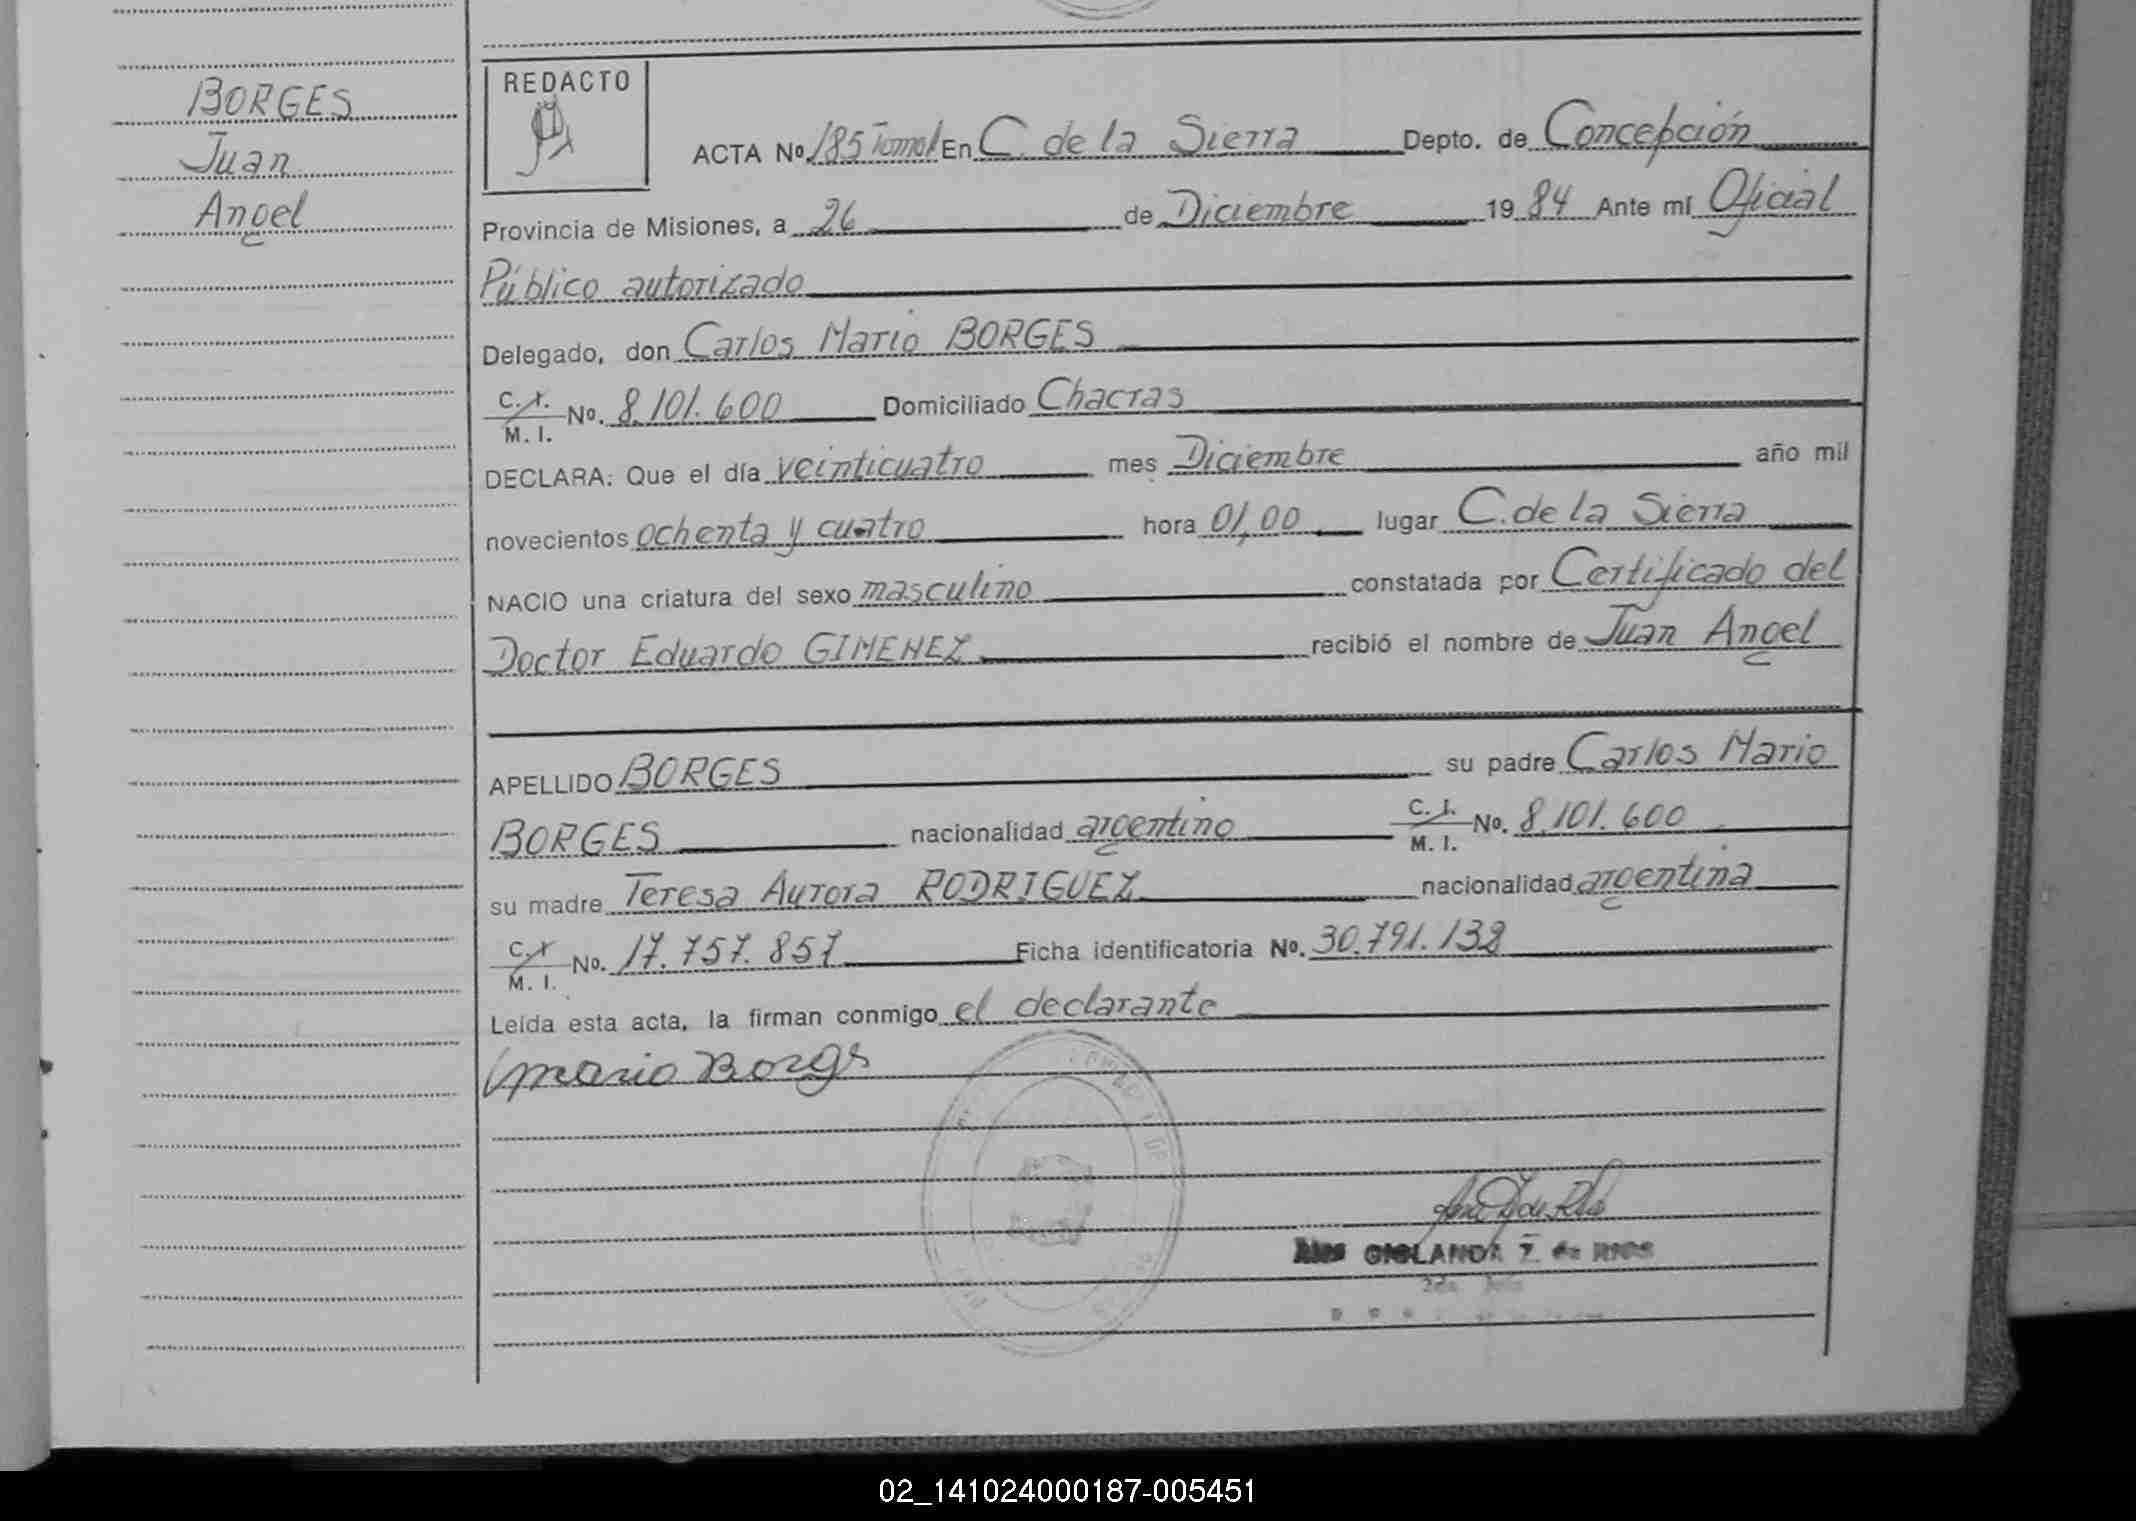 BORGES
Juan
Angel
REDACTO
ACTA Nº 185 Tomo I En C. de la Sierra Depto. de Concepción
Provincia de Misiones, a 26 de Diciembre 1984 Ante mí Oficial
Público autorizado
Delegado, don Carlos Mario BORGES
C. I. M. I. No. 8.101.600 Domiciliado Chacras
DECLARA: Que el día veinticuatro mes Diciembre año mil
novecientos ochenta y cuatro hora 01,00 lugar C. de la Sierra
NACIO una criatura del sexo masculino constatada por Certificado del
Doctor Eduardo GIMENEZ recibió el nombre de Juan Angel
APELLIDO BORGES su padre Carlos Mario
BORGES nacionalidad argentino C. I. M. I. No. 8.101.600
su madre Teresa Aurora RODRIGUEZ nacionalidad argentina
C. I. M. I. No. 17.757.857 Ficha identificatoria Nº. 30.791.138
Leída esta acta, la firman conmigo el declarante
Mario Borges
GISLANDA Z. de RIOS
02_141024000187-005451